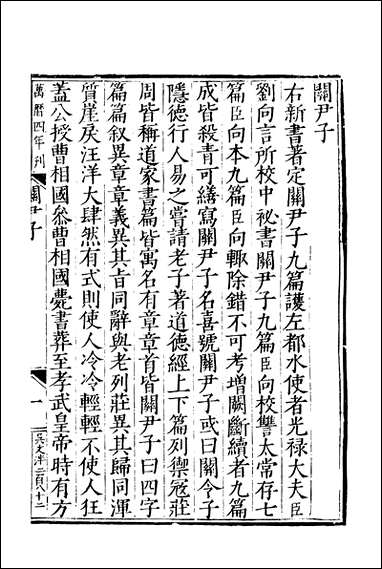 關尹子
右新書著定關尹子九篇護左都水使者光禄大夫臣
劉向言所校中祕書關尹子九篇臣向校讐太常存七
篇臣向本九篇臣向輙除錯不可考增闕斷續者九篇
成皆殺青可繕寫關尹子名喜號關尹子或曰關令子
隱德行人易之嘗請老子著道德經上下篇列禦冦莊
周皆稱道家書篇皆寓名有章章首皆關尹子曰四字
篇篇叙異章章義異其旨同辭與老列莊異其歸同渾
質崖戾汪洋大肆然有式則使人冷冷輕輕不使人狂
蓋公授曹相國叅曹相國薨書葬至孝武皇帝時有方
萬曆四年刋
關尹子
一
吳文洋二百八十二